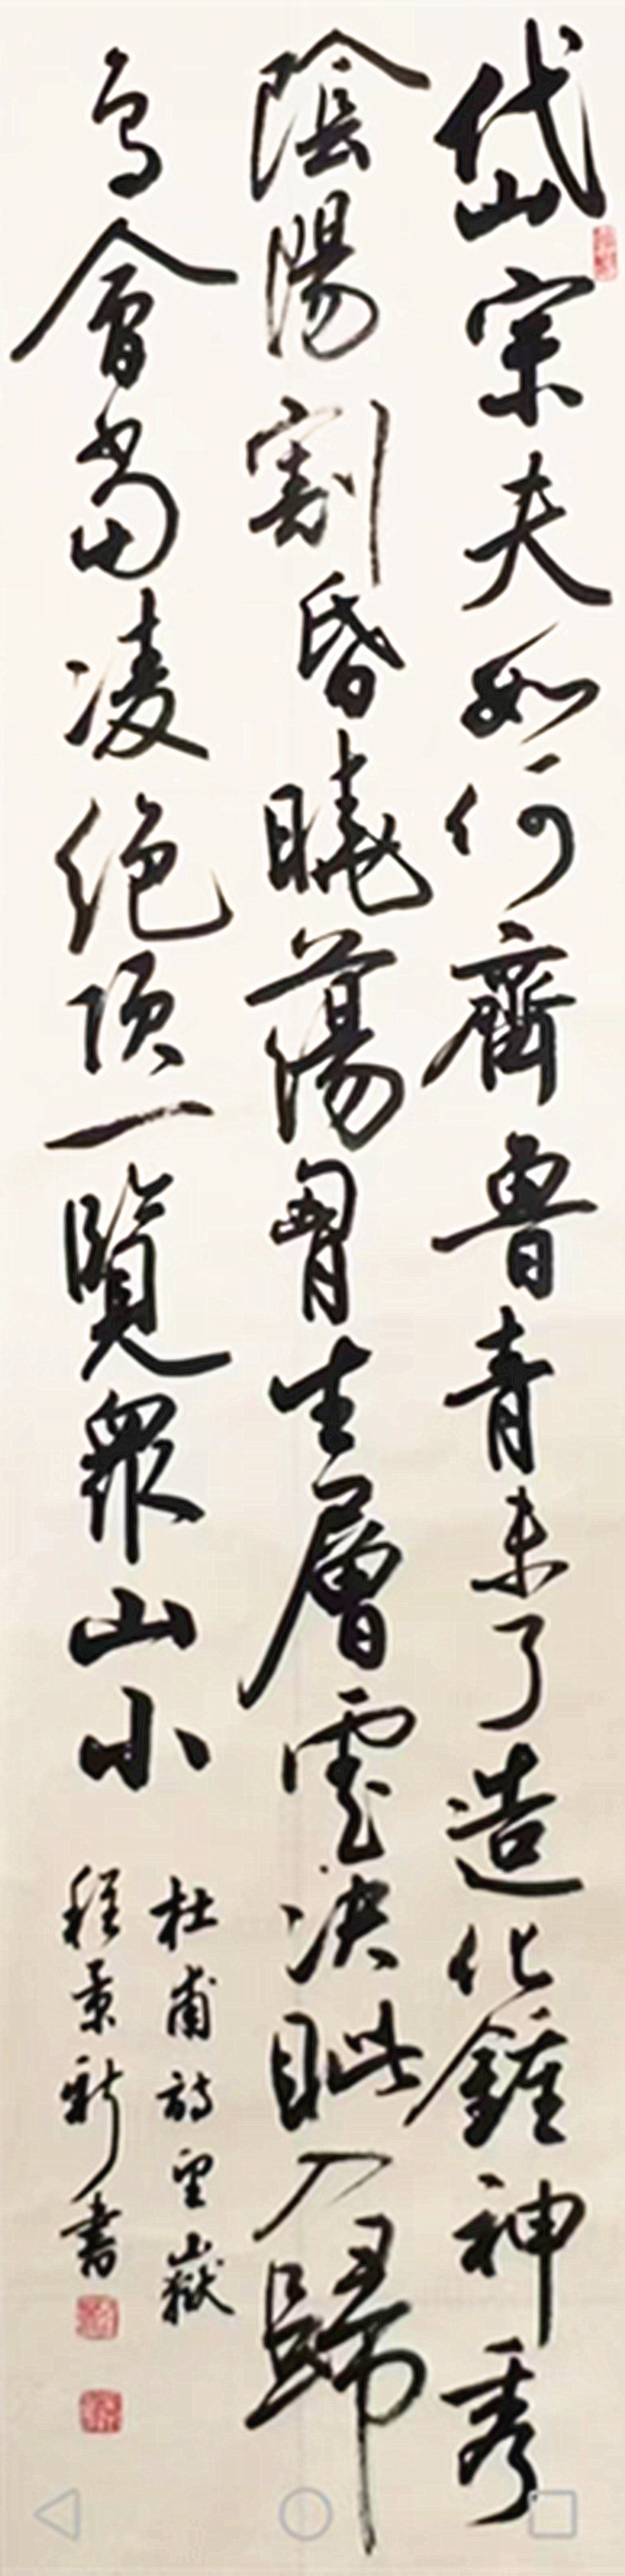 岱山宗夫如何齊魯青未了造化鍾神秀
陰陽割昏曉蕩胷生層雲決眦入歸
鳥會當凌絕頂一覽眾山小
杜甫詩望嶽
程景新書